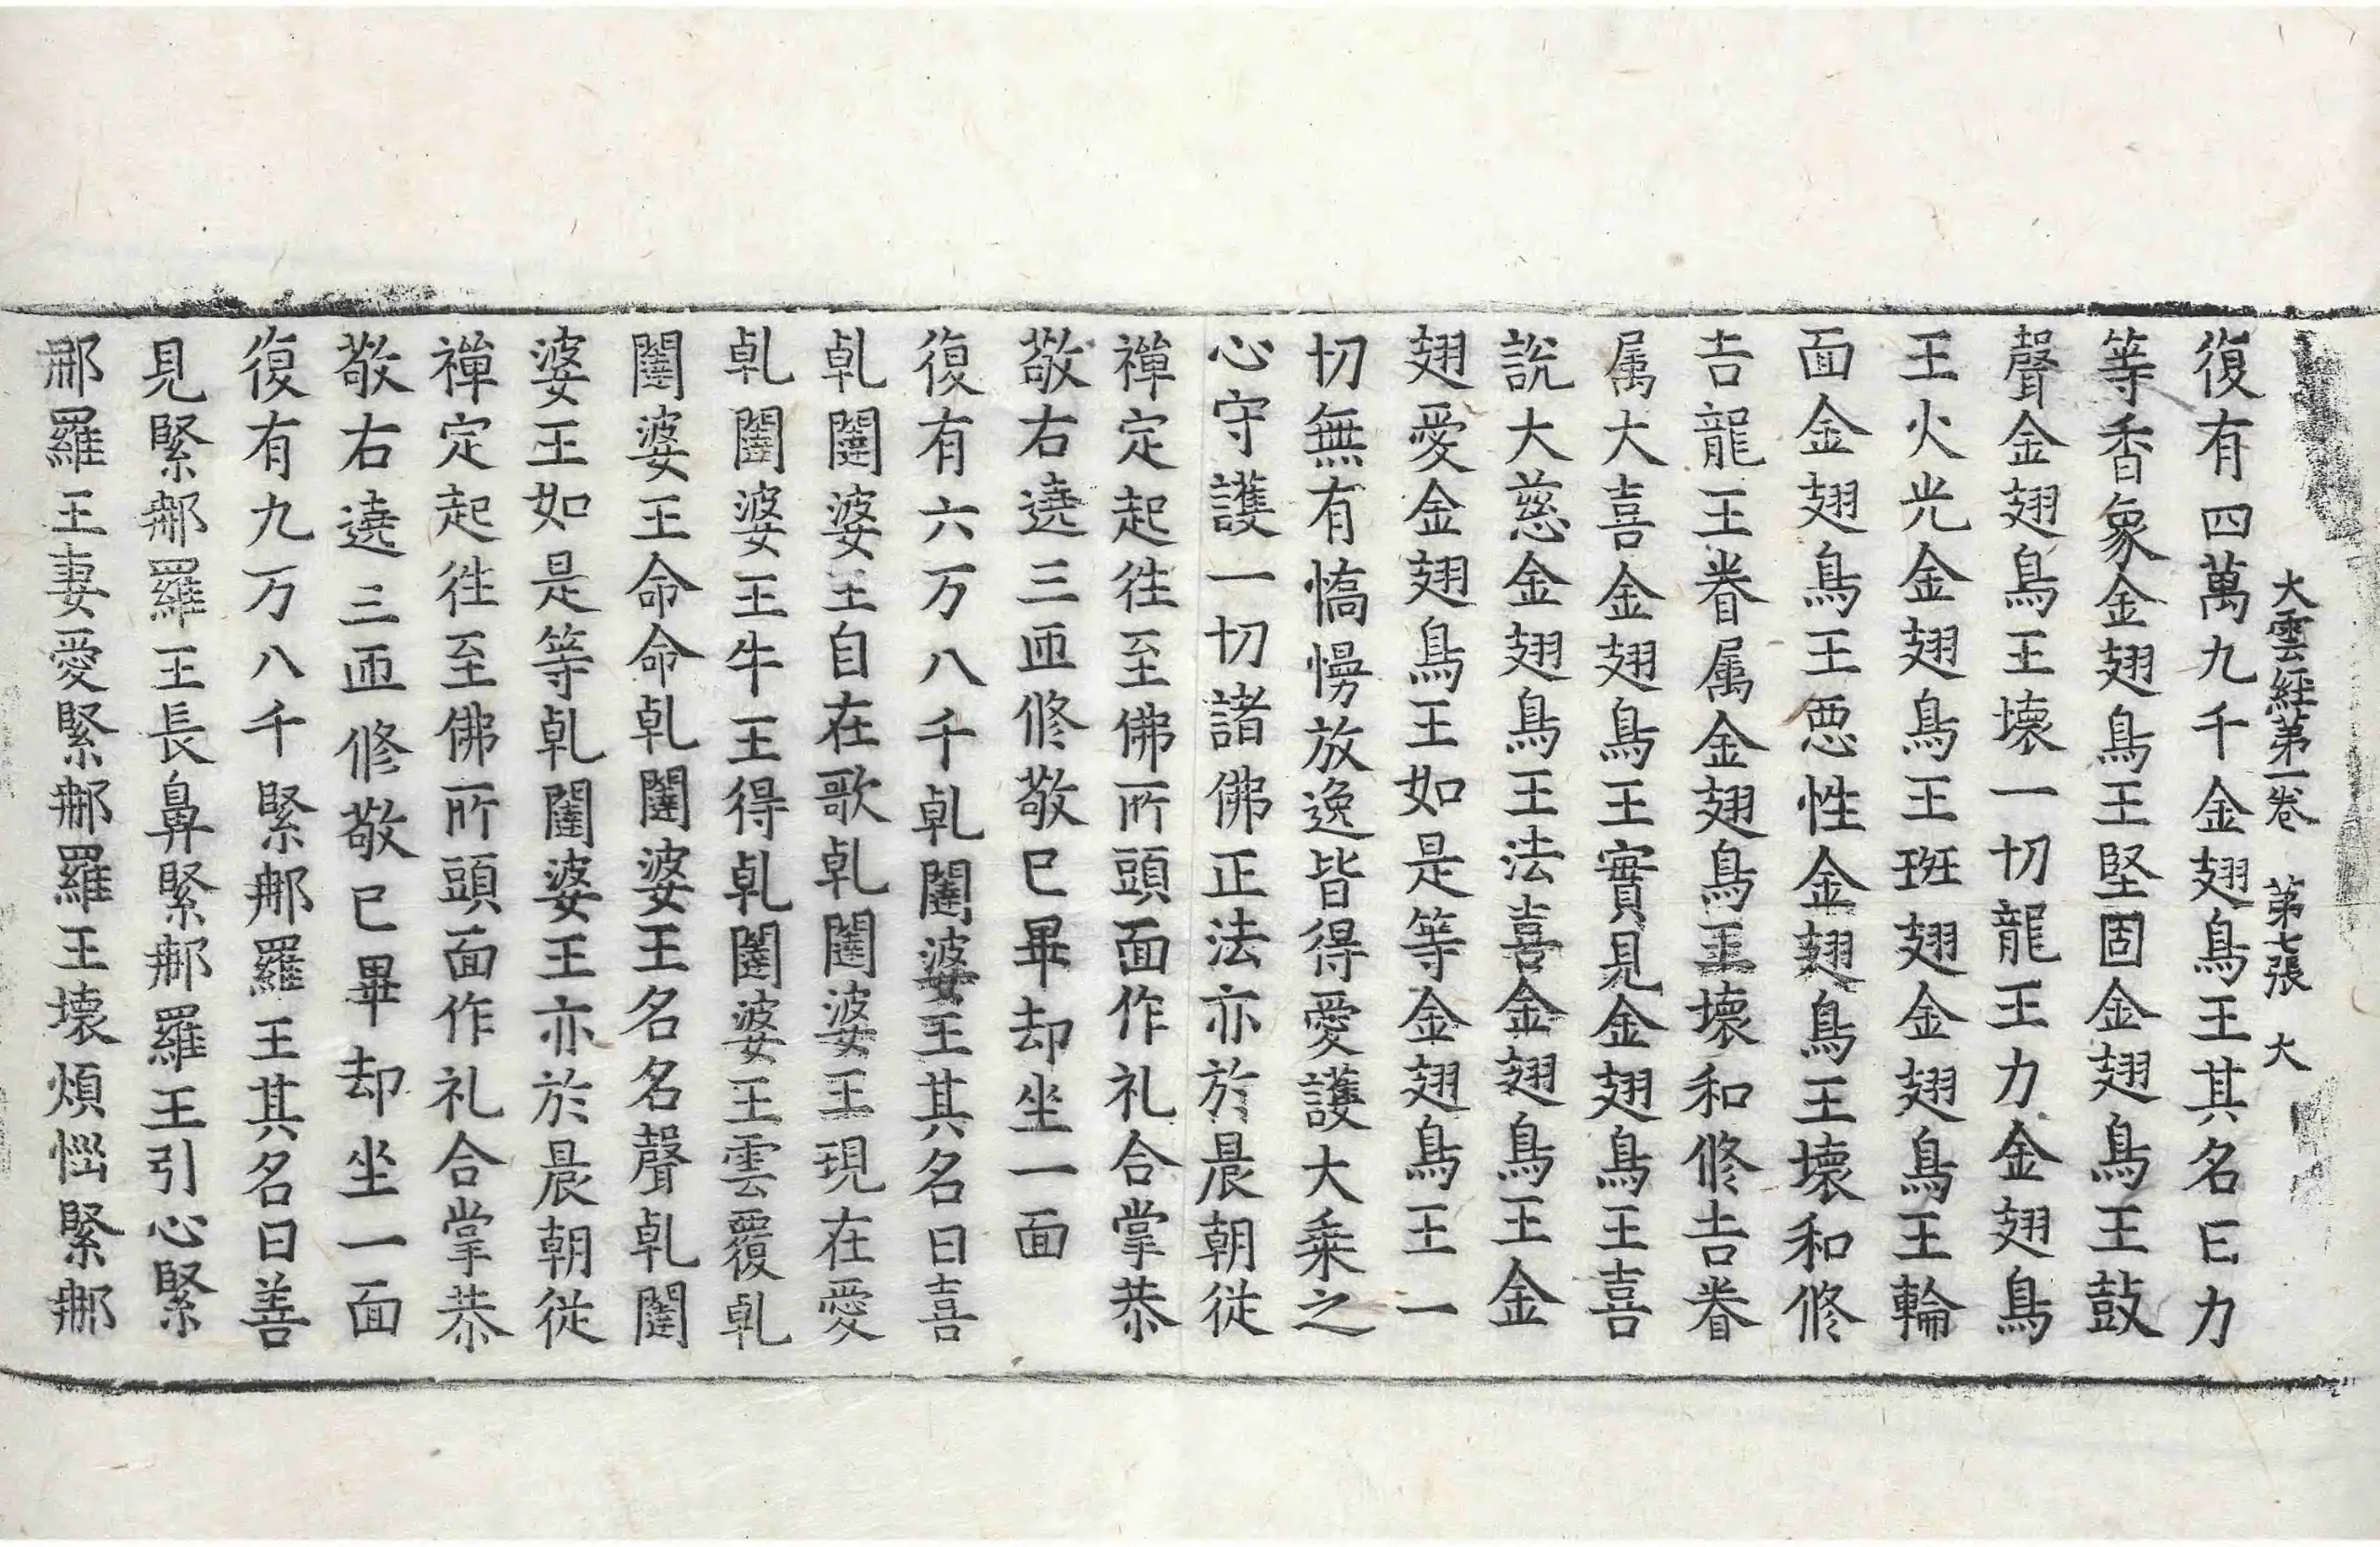 大雲經第一卷 第七張 大
復有四萬九千金翅鳥王其名曰力
等香象金翅鳥王堅固金翅鳥王鼓
聲金翅鳥王壞一切龍王力金翅鳥
王火光金翅鳥王班翅金翅鳥王輪
面金翅鳥王惡性金翅鳥王壞和修
吉龍王眷属金翅鳥王壞和修吉眷
属大喜金翅鳥王實見金翅鳥王喜
說大慈金翅鳥王法喜金翅鳥王金
翅愛金翅鳥王如是等金翅鳥王一
切無有憍慢放逸皆得愛護大乗之
心守護一切諸佛正法亦於晨朝従
禪定起徃至佛所頭面作礼合掌恭
敬右遶三匝修敬已畢却坐一面
復有六万八千乹闥婆王其名曰喜
乹闥婆王自在歌乹闥婆王現在愛
乹闥婆王牛王得乹闥婆王雲覆乹
闥婆王命命乹闥婆王名名聲乹闥
婆王如是等乹闥婆王亦於晨朝従
禪定起徃至佛所頭面作礼合掌恭
敬右遶三匝修敬已畢却坐一面
復有九万八千緊那羅王其名曰善
見緊那羅王長鼻緊那羅王引心緊
那羅王妻愛緊那羅王壞煩惱緊那